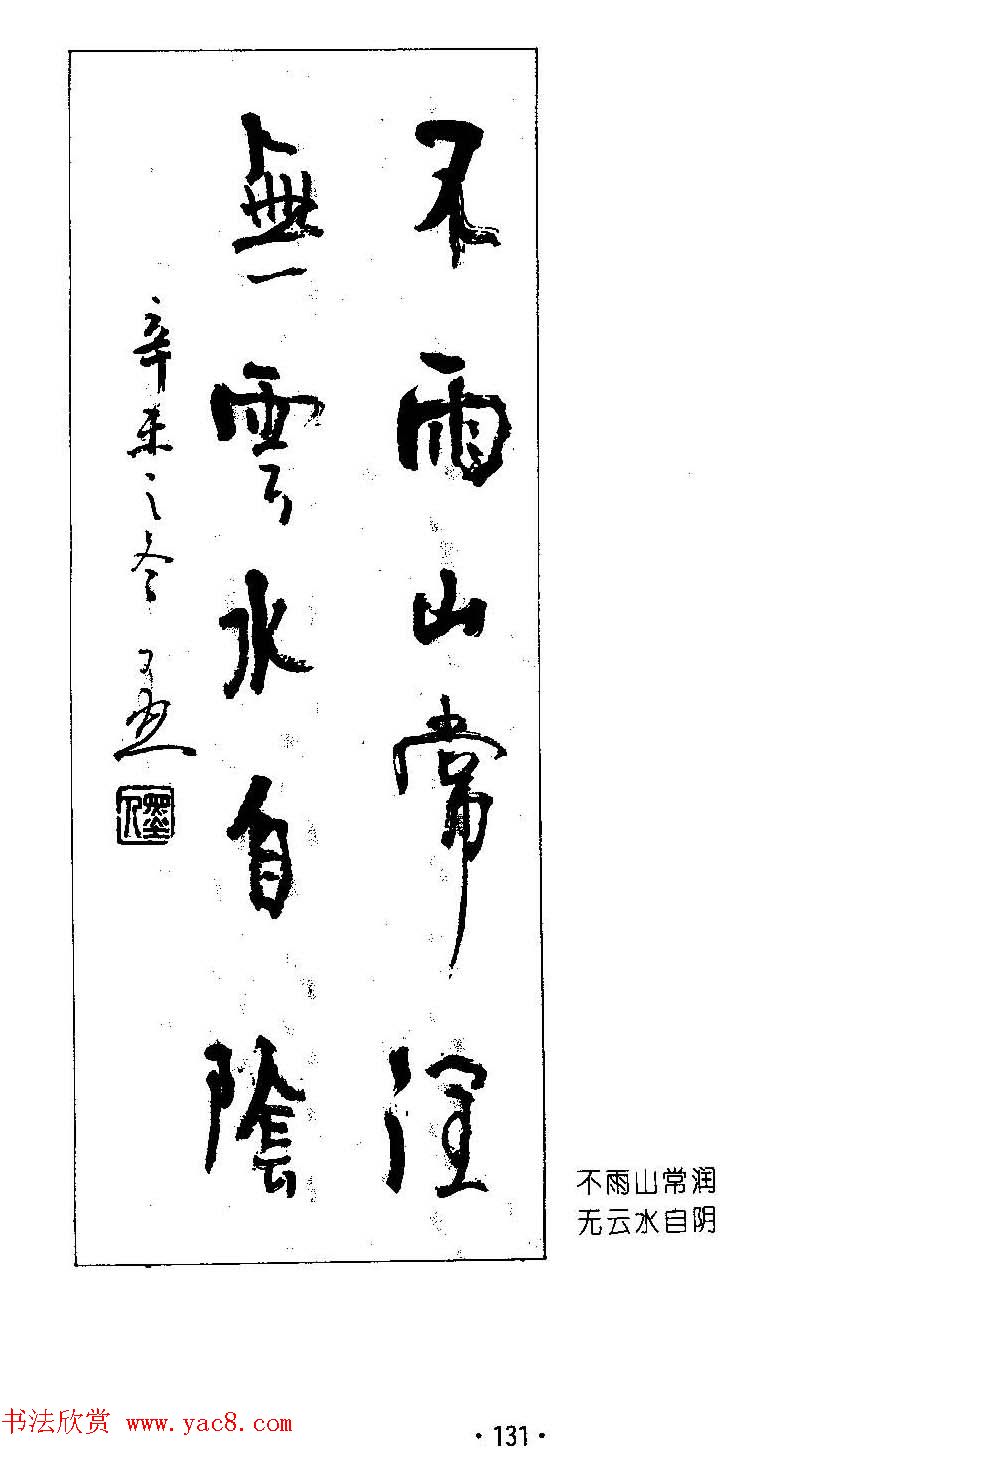 不雨山常润
無雲水自陰
辛未之冬
墨
不雨山常润
无云水自阴
书法欣赏 www.yac8.com
·131·